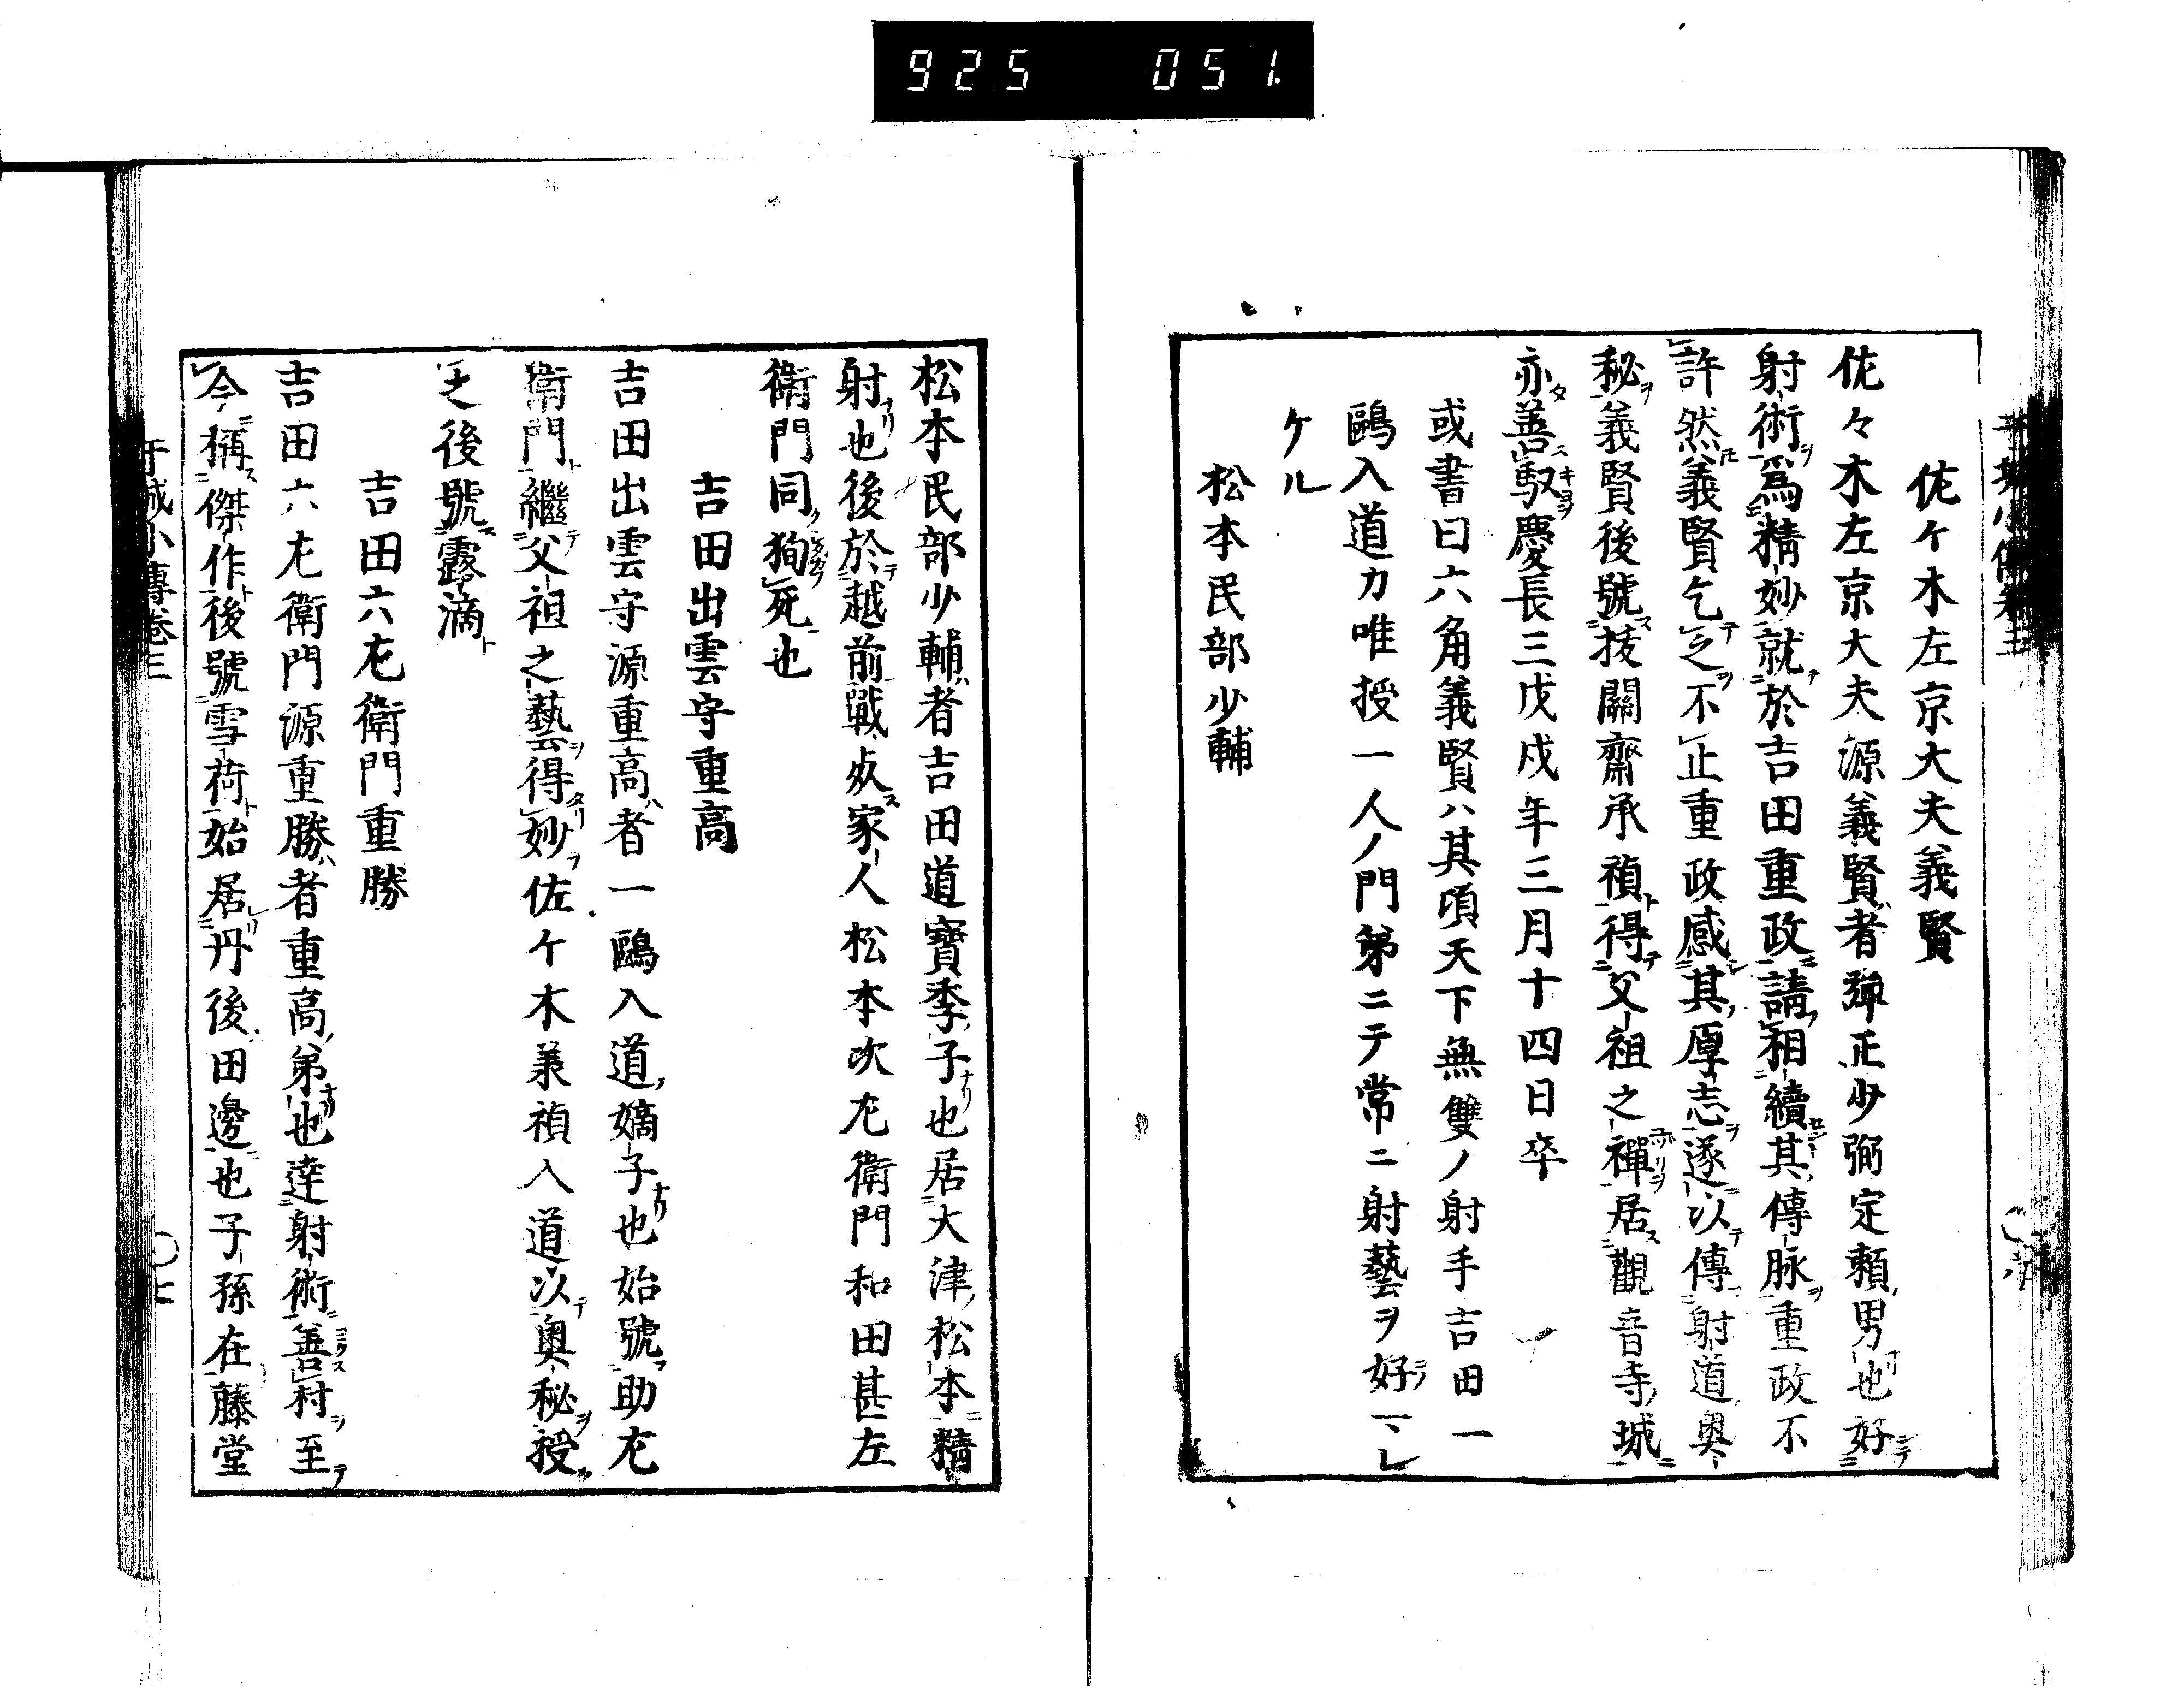 925 051.
佐々木左京大夫義賢
佐々木左京大夫源義賢者彈正少弼定賴男也好
射術爲精妙就於吉田重政請相續其傳脉重政不
許然義賢乞之不止重政感其厚志遂以傳射道奧
秘義賢後號抜關齋承禎得父祖之禪居觀音寺城
亦善馭慶長三戊戌年三月十四日卒
或書曰六角義賢ハ其頃天下無雙ノ射手吉田一
鷗入道カ唯授一人ノ門第ニテ常ニ射藝ヲ好マレ
ケル
松本民部少輔
松本民部少輔者吉田道寶季子也居大津松本精
射也後於越前戰死家人松本次左衛門和田甚左
衛門同狥死也
吉田出雲守重高
吉田出雲守源重高者一鷗入道嫡子也始號助左
衛門繼父祖之藝得妙佐々木義禎入道以奧秘授
之後號露滴
吉田六左衛門重勝
吉田六左衛門源重勝者重高弟也達射術善村至
今稱傑作後號雪荷始居丹後田邊也子孫在藤堂
干城小傳卷三
〇七